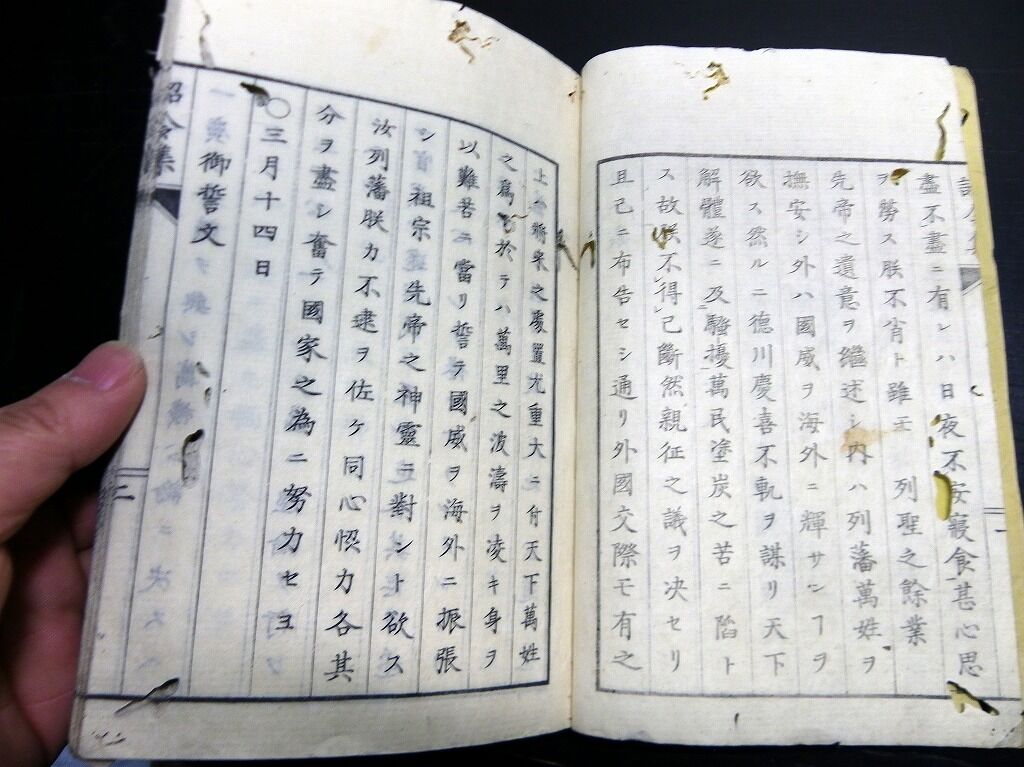 盡不盡ニ有レハ日夜不安寢食甚心思
ヲ勞ス朕不肖ト雖モ 列聖之餘業
先帝之遺意ヲ繼述シ内ハ列藩萬姓ヲ
撫安シ外ハ國威ヲ海外ニ輝サンヿヲ
欲ス然ルニ德川慶喜不軌ヲ謀リ天下
解體遂ニ及騷擾萬民塗炭之苦ニ陷ト
ス故朕不得已斷然親征之議ヲ决セリ
且已ニ布告セシ通リ外國交際モ有之
上ハ將來之處置尤重大ニ付天下萬姓
之爲ニ於テハ萬里之波濤ヲ凌キ身ヲ
以難苦ニ當リ誓テ國威ヲ海外ニ振張
シ 祖宗先帝之神靈ニ對シト欲ス
汝列藩朕カ不逮ヲ佐ケ同心恊力各其
分ヲ盡シ奮テ國家之為ニ努力セヨ
〇三月十四日
御誓文
詔令集
二
一